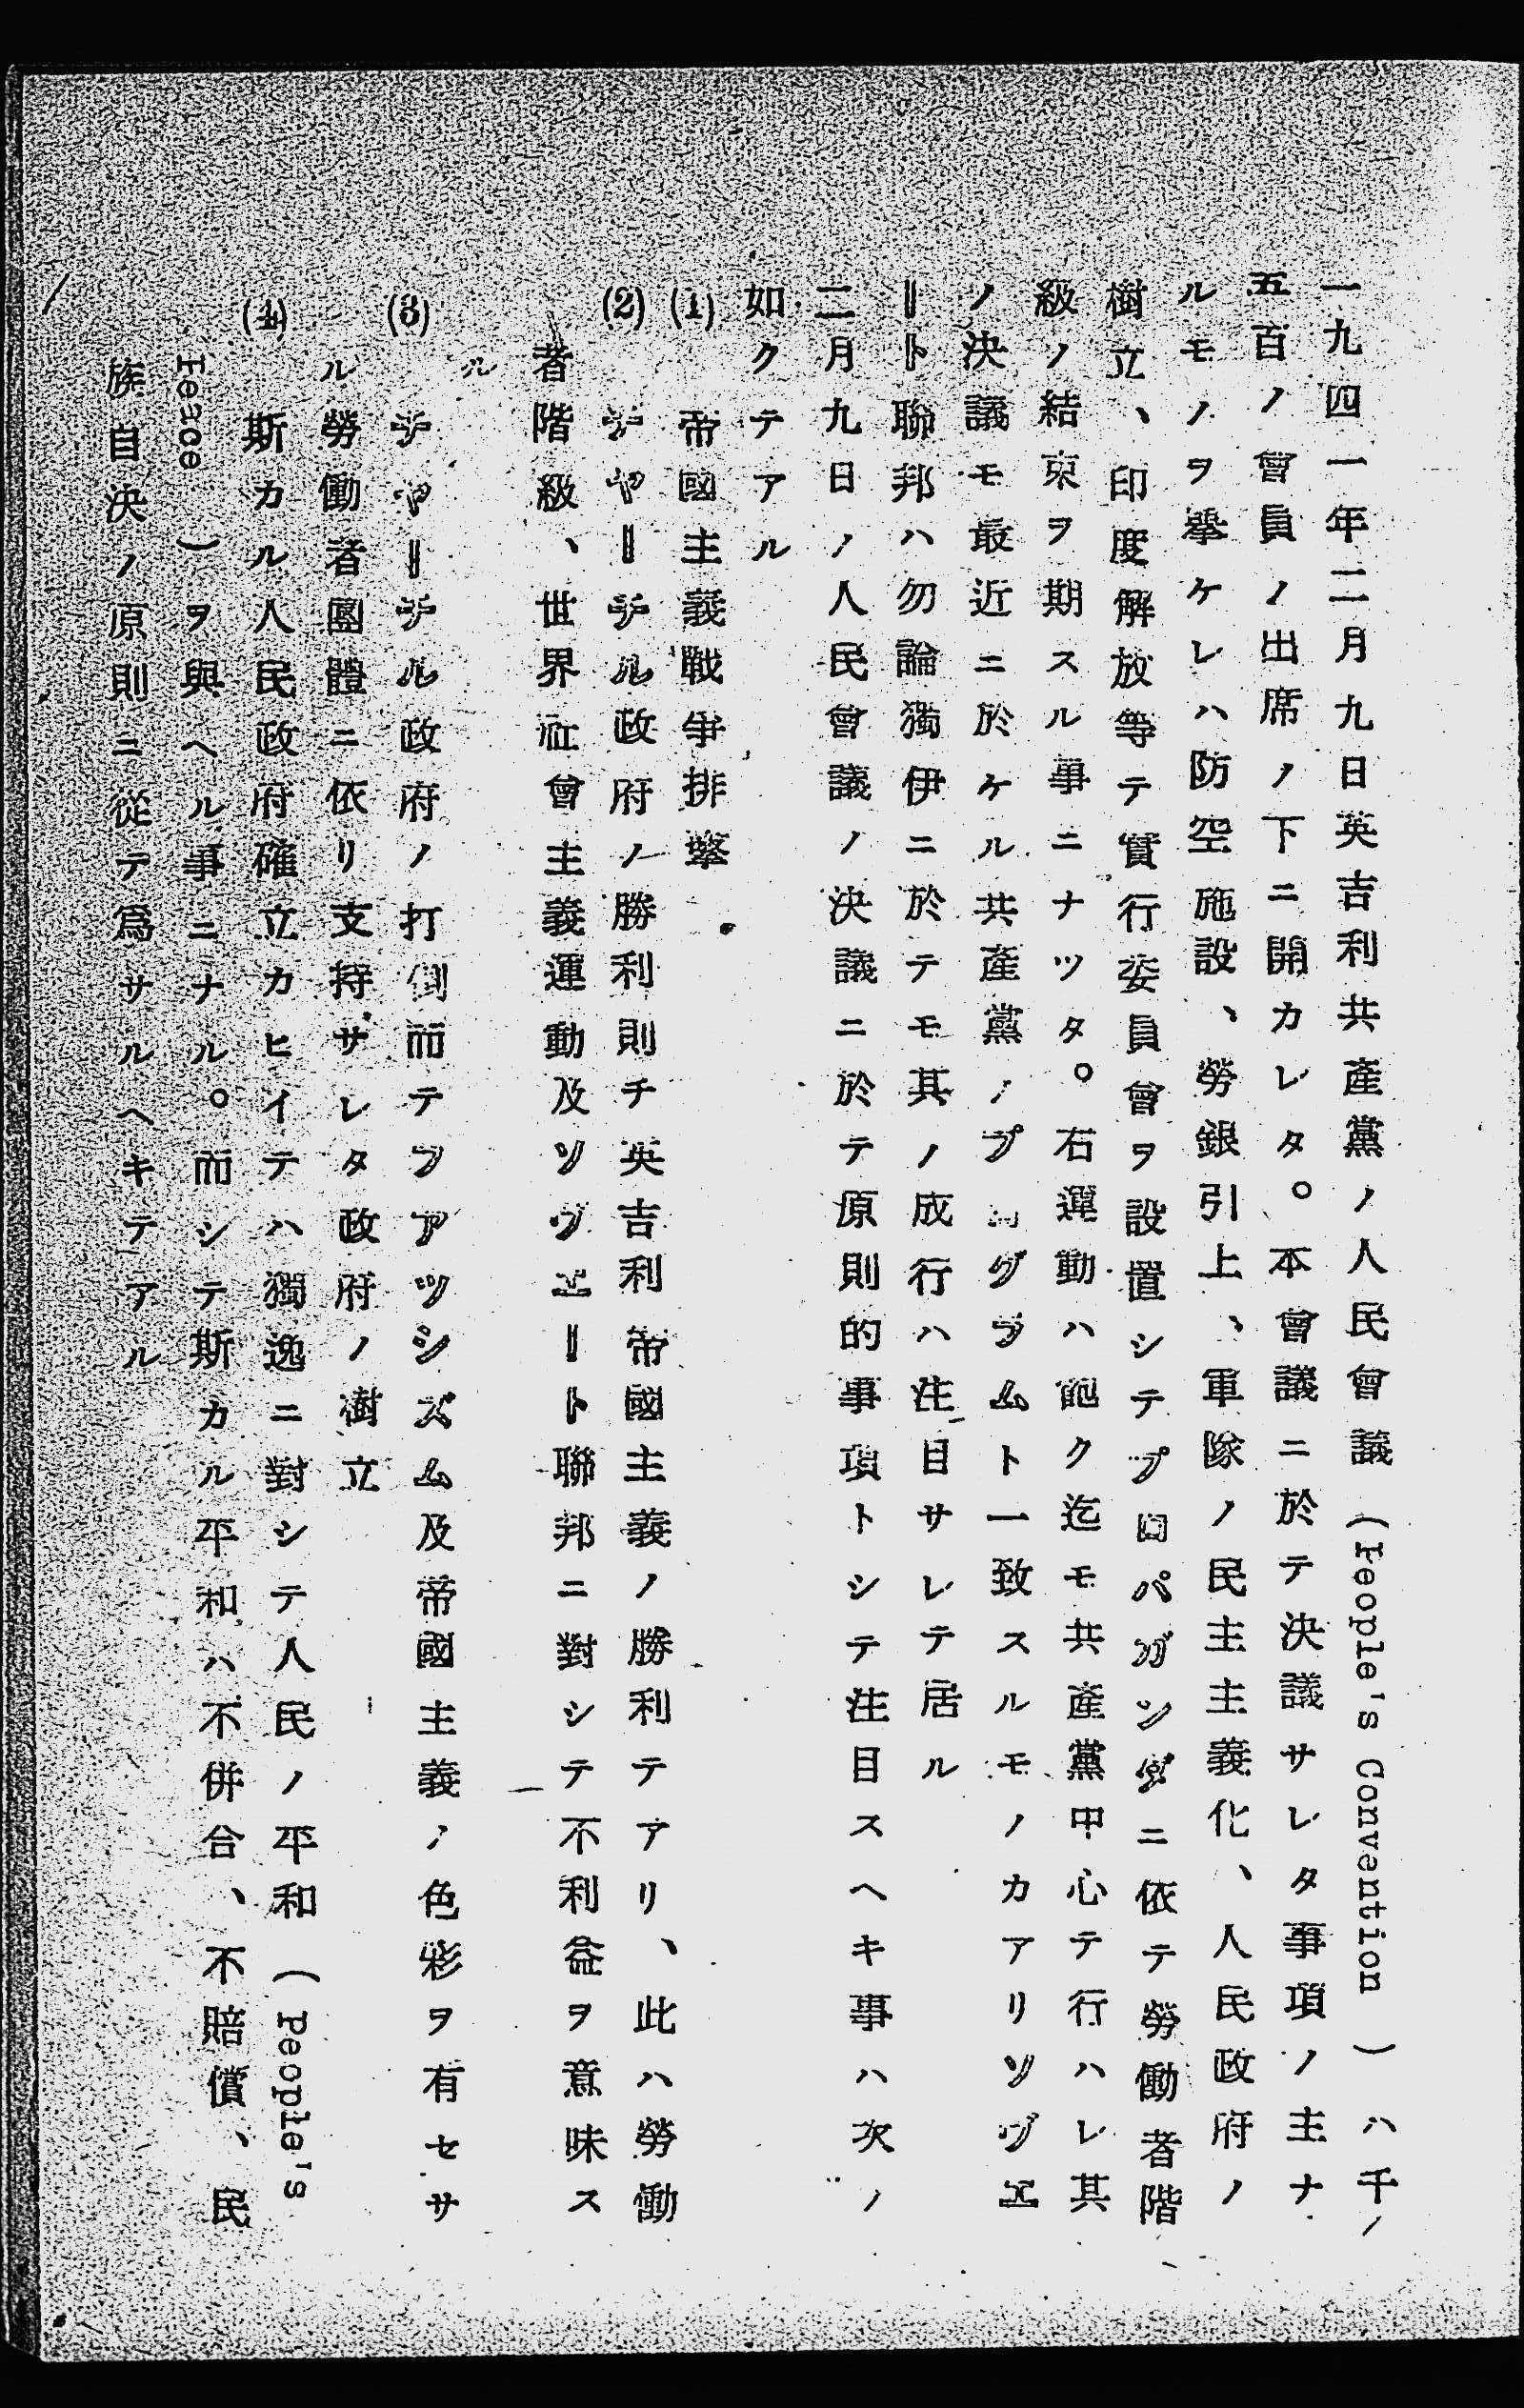 一九四一年二月九日英吉利共產黨ノ人民會議（People's Convention）ハ千
五百ノ會員ノ出席ノ下ニ開カレタ。本會議ニ於テ決議サレタ事項ノ主ナ
ルモノヲ擧ケレハ防空施設、勞銀引上、軍隊ノ民主主義化、人民政府ノ
樹立、印度解放等テ實行委員會ヲ設置シテプロパガンダニ依テ勞働者階
級ノ結束ヲ期スル事ニナツタ。右運動ハ飽ク迄モ共產黨中心テ行ハレ其
ノ決議モ最近ニ於ケル共產黨ノプログラムト一致スルモノカアリソヴエ
ート聯邦ハ勿論獨伊ニ於テモ其ノ成行ハ注目サレテ居ル
二月九日ノ人民會議ノ決議ニ於テ原則的事項トシテ注目スヘキ事ハ次ノ
如クテアル
(1) 帝國主義戰爭排擊
(2) チヤーチル政府ノ勝利則チ英吉利帝國主義ノ勝利テアリ、此ハ勞働
者階級、世界社會主義運動及ソヴエート聯邦ニ對シテ不利益ヲ意味ス
ル
(3) チヤーチル政府ノ打倒而テフアツシズム及帝國主義ノ色彩ヲ有セサ
ル勞働者團體ニ依リ支持サレタ政府ノ樹立
(4) 斯カル人民政府確立カヒイテハ獨逸ニ對シテ人民ノ平和（People's
Peace）ヲ與ヘル事ニナル。而シテ斯カル平和ハ不併合、不賠償、民
族自決ノ原則ニ從テ爲サルヘキテアル